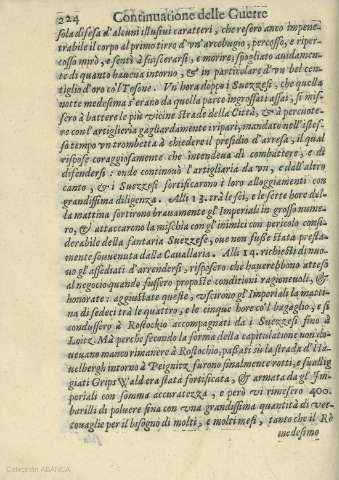 224 Continuatione delle Guerre
sola difesa d'alcuni illusiui caratteri, che resero anco impene-
trabile il corpo al primo tirro d'vn'arcobugio, percosso, e riper-
cosso mirò, e sentì à fiascarsi, e morire; spogliato auidamen-
te di quanto haueua intorno, & in particolare d'vn bel cen-
tiglio d'oro col Tosone. Vn'hora doppò i Suezzesi, che quella
notte medesima s'erano da quella parte ingrossati assai, si mise-
ro à battere le più vicine strade della Città, & à percuote-
re con l'artiglieria gagliardamente i ripari, mandato nell'istes-
so tempo vn trombetta à chiedere il presidio d'arresa, il qual
rispose coraggiosamente che intendeua di combattere, e di
difendersi: onde continouò l'artigliaria da vn, e dall'altro
canto, & i Suezzesi fortificarono i loro alloggiamenti con
grandissima diligenza. Alli 13. trà le sei, e le sette hore del-
la mattina sortirono brauamente gl'Imperiali in grosso nume-
ro, & attaccarono la mischia con gl'inimici con pericolo consi-
derabile della fantaria Suezzese, oue non fusse stata presta-
mente souuenuta dalla Cauallaria. Alli 14. richiesti di nuo-
uo gl'assediati d'arrendersi, risposero che hauerebbono atteso
al negocio quando fussero proposte conditioni ragioneuoli, &
honorate: aggiustate queste, vscirono gl'Imperiali la matti-
na di sedeci trà le quattro, e le cinque hore co'l bagaglio, e si
condussero à Rostochio accompagnati da i Suezzesi fino à
Loitz. Mà perche secondo la forma della capitulatione non do-
ueuano manco rimanere à Rostochio, passati sù la strada d'Ha-
uelbergh intorno à Peignitz, furono finalmente rotti, e sualig-
giati Grips Wald era stata fortificata, & armata da gl'Im-
periali con somma accuratezza, e però vi rimesero 400.
barilli di poluere fina con vna grandissima quantità di vet-
touaglie per il bisogno di molti, e molti mesi, tanto che il Rè
medesimo
Colección ABANCA